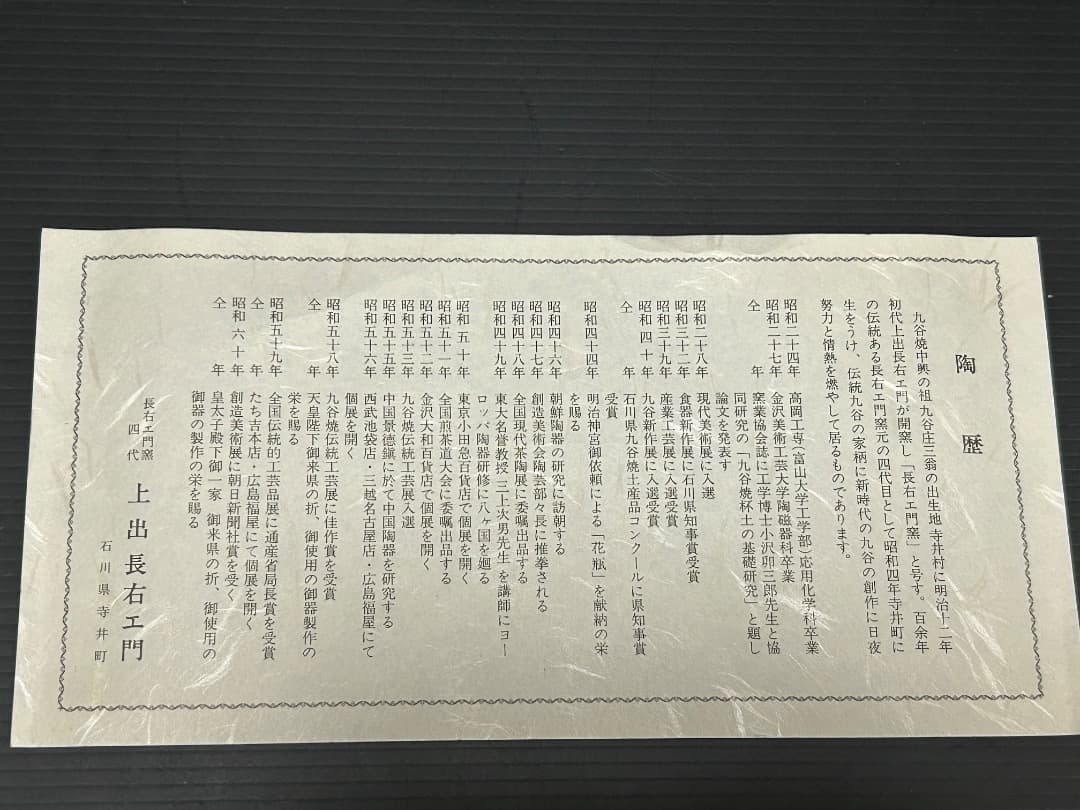 陶歴
九谷焼中興の祖九谷庄三翁の出生地寺井村に明治十二年
初代上出長右エ門が開窯し「長右エ門窯」と号す。百余年
の伝統ある長右エ門窯元の四代目として昭和四年寺井町に
生をうけ、伝統九谷の家柄に新時代の九谷の創作に日夜
努力と情熱を燃やして居るものであります。
昭和二十四年 高岡工専(富山大学工学部)応用化学科卒業
昭和二十七年 金沢美術工芸大学陶磁器科卒業
仝 年 窯業協会誌に工学博士小沢卯三郎先生と協
同研究の「九谷焼杯土の基礎研究」と題し
論文を発表す
昭和二十八年 現代美術展に入選
昭和三十二年 食器新作展に石川県知事賞受賞
昭和三十九年 産業工芸展に入選受賞
昭和四十年 九谷新作展に入選受賞
仝 年 石川県九谷焼土産品コンクールに県知事賞
受賞
昭和四十四年 明治神宮御依頼による「花瓶」を献納の栄
を賜る
昭和四十六年 朝鮮陶器の研究に訪朝する
昭和四十七年 創造美術会陶芸部々長に推挙される
昭和四十八年 全国現代茶陶展に委嘱出品する
昭和四十九年 東大名誉教授「三上次男先生」を講師にヨー
ロッパ陶器研修に八ヶ国を廻る
昭和五十年 東京小田急百貨店で個展を開く
昭和五十一年 全国煎茶道大会に委嘱出品する
昭和五十二年 金沢大和百貨店で個展を開く
昭和五十三年 九谷焼伝統工芸展入選
昭和五十五年 中国景徳鎮に於て中国陶器を研究する
昭和五十六年 西武池袋店・三越名古屋店・広島福屋にて
個展を開く
昭和五十八年 九谷焼伝統工芸展に佳作賞を受賞
仝 年 天皇陛下御来県の折、御使用の御器製作の
栄を賜る
昭和五十九年 全国伝統的工芸品展に通産省局長賞を受賞
仝 年 たち吉本店・広島福屋にて個展を開く
昭和六十年 創造美術展に朝日新聞社賞を受く
仝 年 皇太子殿下御一家 御来県の折、御使用の
御器の製作の栄を賜る
長右エ門窯
四代 上出長右エ門
石川県寺井町